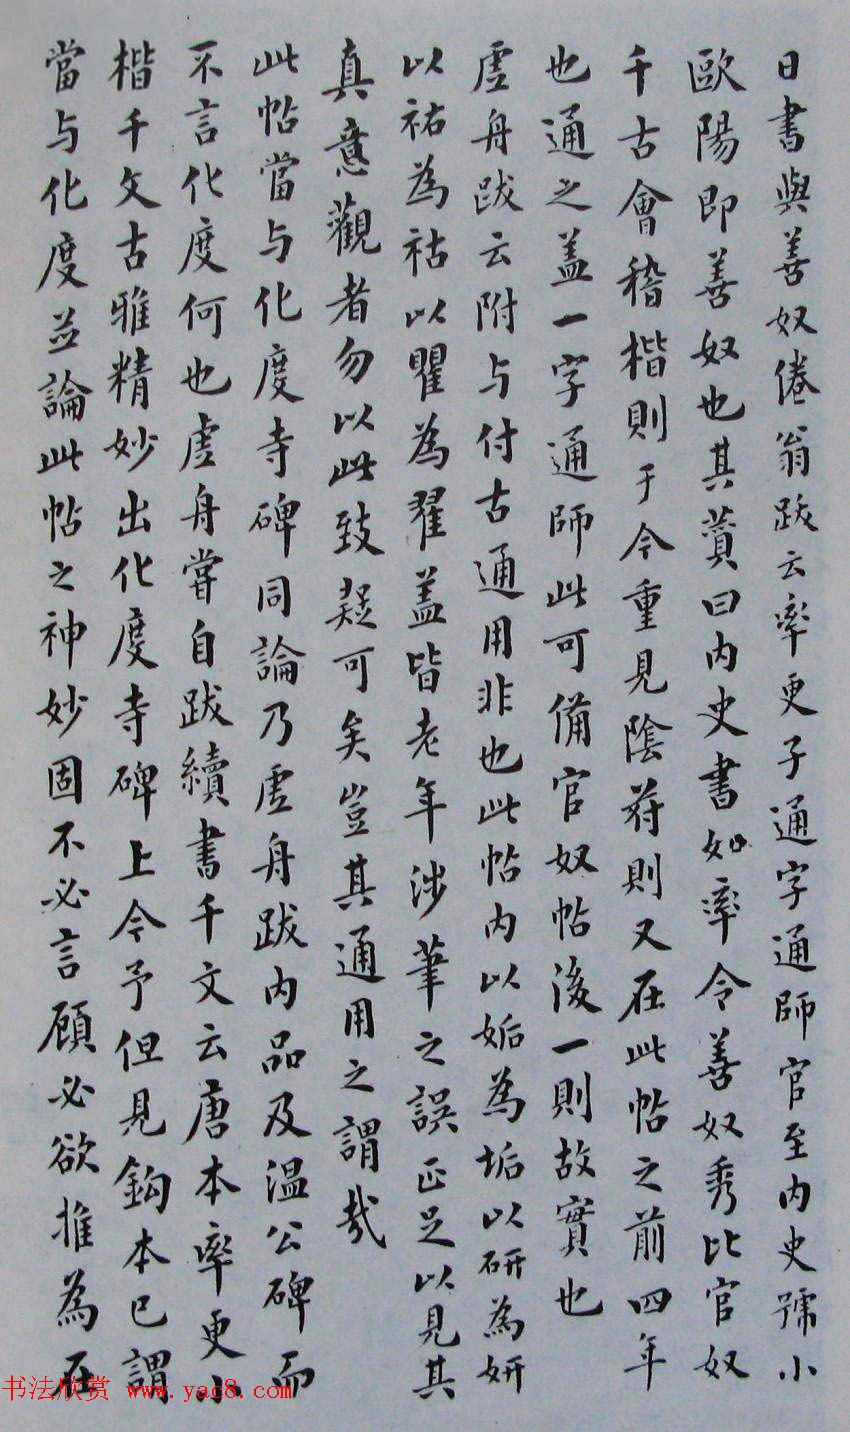 日書與善奴倦翁跋云率更子通字通師官至内史號小
歐陽即善奴也其蕒曰内史書如率令善奴秀比官奴
千古會稽楷則于今重見陰符則又在此帖之前四年
也通之盖一字通師此可備官奴帖後一則故實也
虚舟跋云附与付古通用非也此帖内以姤為垢以研為妍
以祐為祜以瞿為翟盖皆老年涉筆之誤正足以見其
真意觀者勿以此致疑可矣豈其通用之謂哉
此帖當与化度寺碑同論乃虚舟跋内品及温公碑而
不言化度何也虚舟嘗自跋續書千文云唐本率更小
楷千文古雅精妙出化度寺碑上今予但見鈎本已謂
當与化度並論此帖之神妙固不必言顧必欲推為在
书法欣赏 www.yac8.com